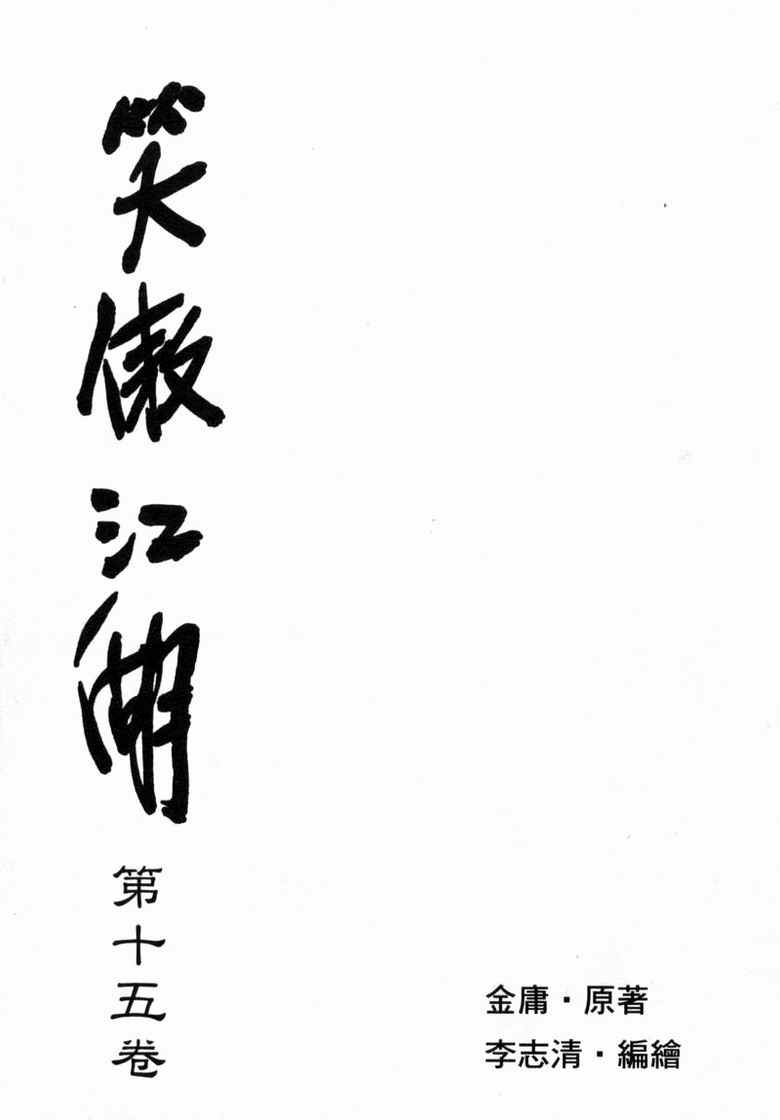 笑傲江湖
第十五卷
金庸·原著
李志清·編繪